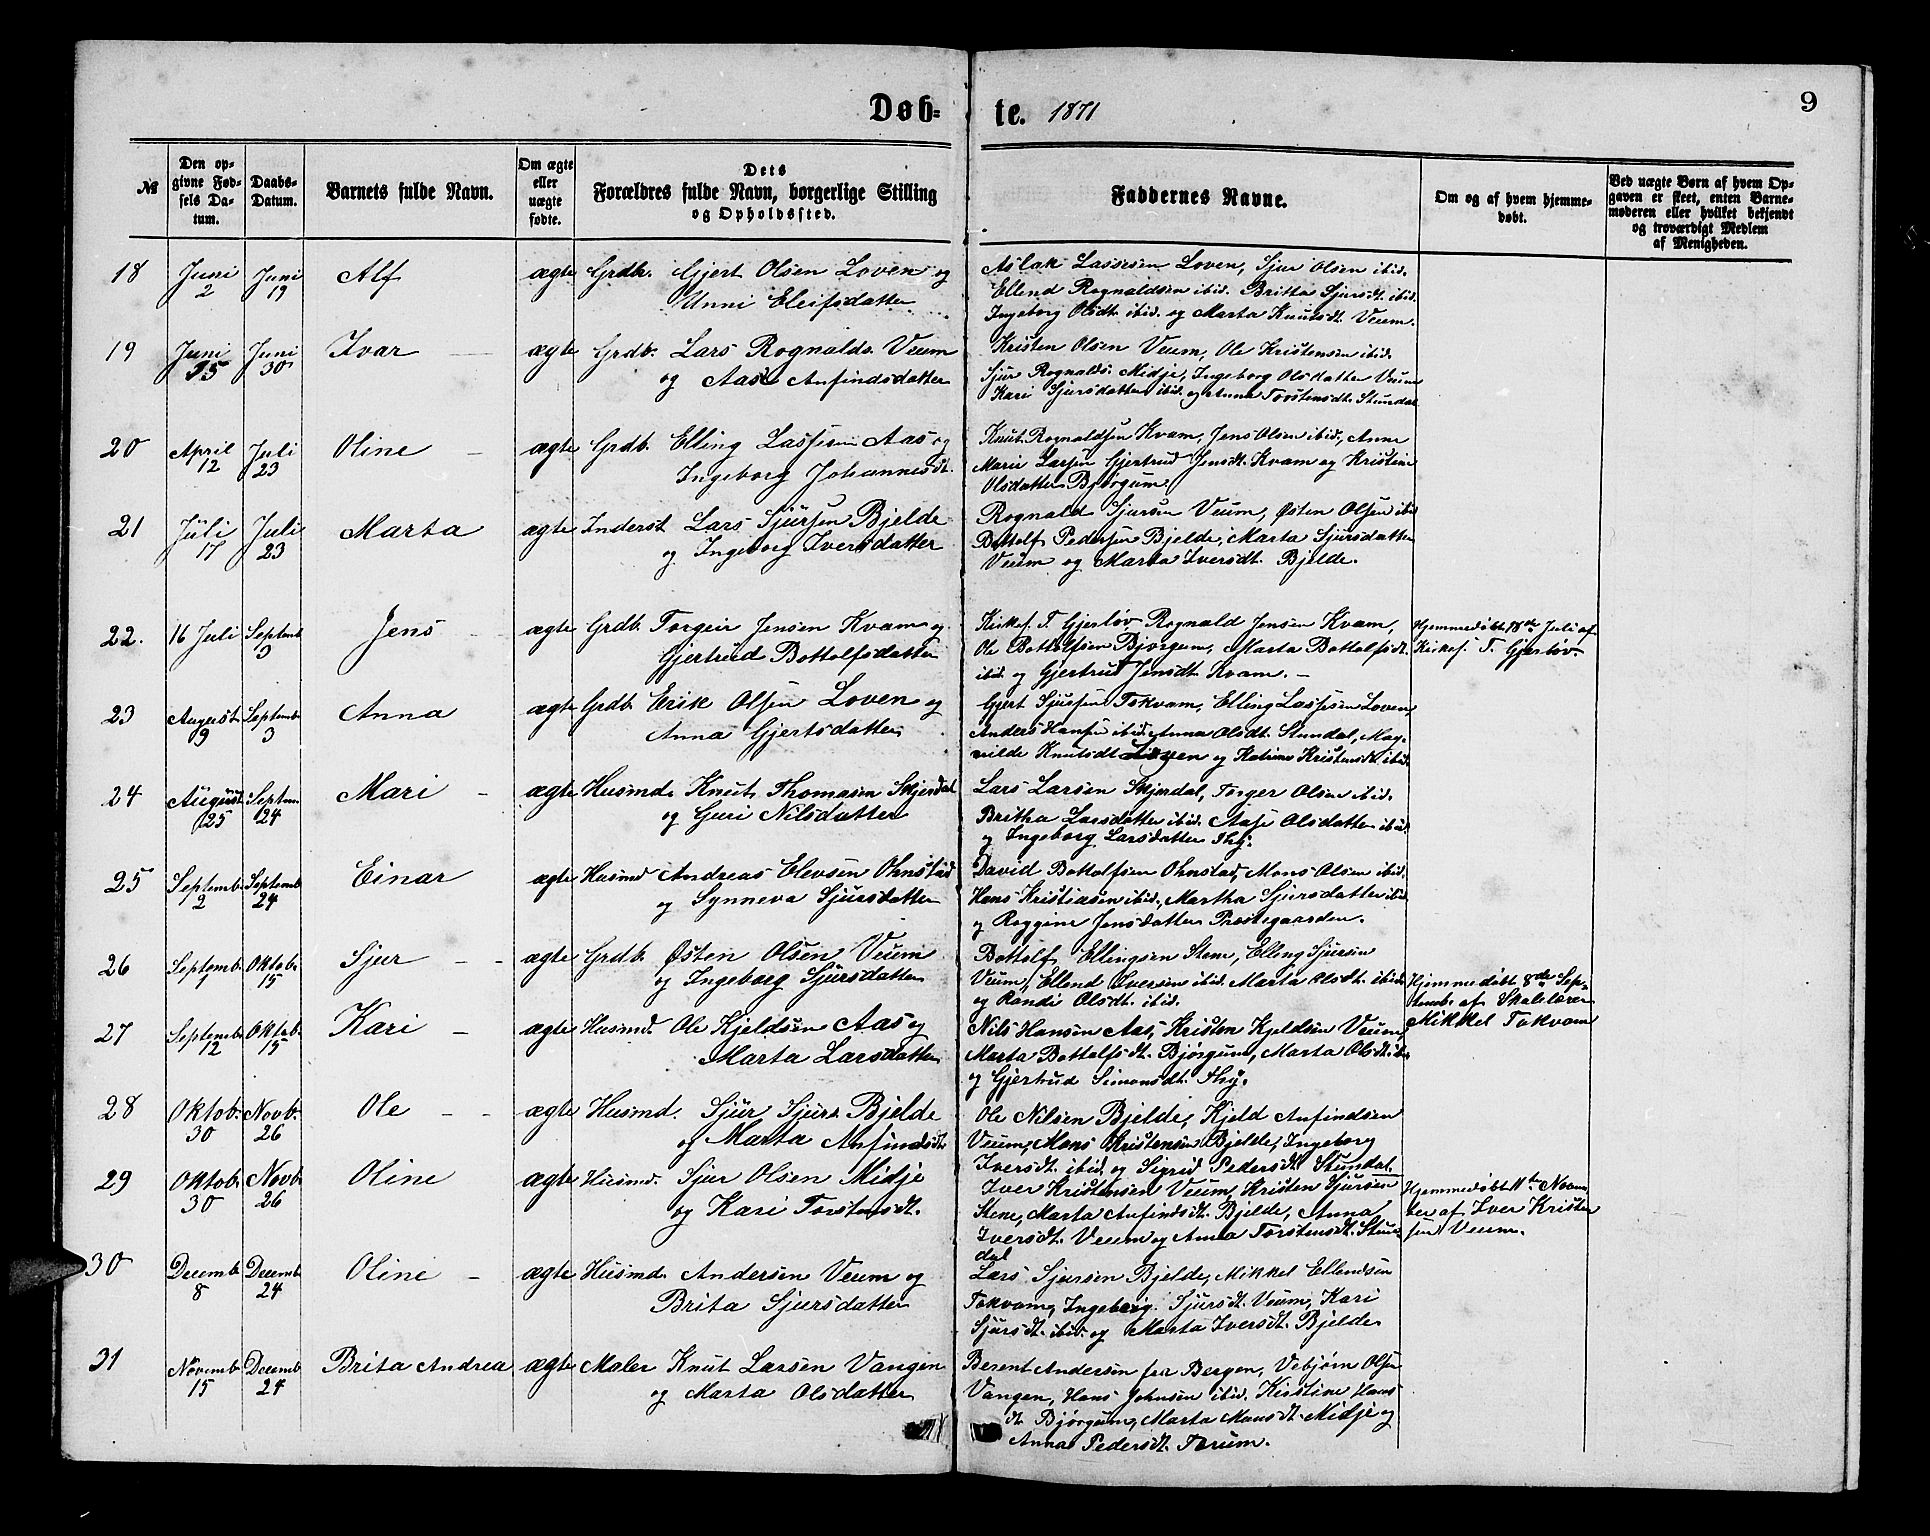 Døb-
te. 1871
9
№
Den op-
givne Fød-
sels Da-
tum.
Daabs-
Datum.
Barnets fulde Navn.
Om ægte
eller
uægte
fødte.
Dets
Forældres fulde Navn, borgerlige Stilling
og Opholdssted.
Faddernes Navne.
Om og af hvem hjemme-
døbt.
Ved uægte Børn af hvem Op-
gaven er skeet, enten Barne-
moderen eller hvilket bekjendt
og troværdigt Medlem
af Menigheden.
18 Juni 2 Juni 19 Alf ægte Grdbr. Gjert Olsen Loven og
Unni Eleifsdatter
Aslak Lassesen Loven, Sjur Olsen ibid.
Ellend Rognaldsen ibid. Britta Sjursdt. ibid.
Ingeborg Olsdt. ibid. og Marta Knutsdt. Veum.
19 Juni 15 Juni 30 Ivar ægte Grdb. Lars Rognalds. Veum
og Aase Anfindsdatter
Kristen Olsen Veum, Ole Kristensen ibid.
Sjur Rognalds. Midje, Ingeborg Olsdatter Veum
Kari Sjursdatter ibid. og Anna Torstensdt. Stundal
20 April 12 Juli 23 Oline ægte Grdb. Elling Lassesen Aas og
Ingeborg Johannesdt.
Knut Rognaldsen Kvam, Jens Olsen ibid., Anne
Marie Larsen Gjertrud Jensdt. Kvam og Kristine
Olsdatter Bjørgum.
21 Juli 17 Juli 23 Marta ægte Inderst Lars Sjursen Bjelde
og Ingeborg Iversdatter
Rognald Sjursen Veum, Østen Olsen ibid
Bottolf Pedersen Bjelde, Marta Sjursdatter
Veum og Marta Iversdt. Bjelde.
22. 16 Juli Septemb. 3 Jens ægte Grdb. Torgeir Jensen Kvam og
Gjertrud Bottolfsdatter
Kirkes. T. Gjerløv, Rognald Jensen Kvam,
Ole Bottolfsen Bjørgum, Marta Bottolfsdt.
ibid. og Gjertrud Jensdt. Kvam. –
Hjemmedøbt 18de Juli af
Kirkes. T. Gjerløv.
23 August 9 Septemb. 3 Anna ægte Grdb. Erik Olsen Loven og
Anna Gjertsdatter
Gjert Sjursen Tokvam, Elling Lassesen Loven,
Anders Hansen ibid. Anna Olsdt. Stundal, Mag-
nilde Knutsdt. Loven og Katrine Kristensdt. ibid.
24 August 25 Septem. 24 Mari ægte Husmd. Knut Thomasen Skjerdal
og Guri Nilsdatter
Lars Larsen Skjerdal, Torger Olsen ibid.
Britha Larsdatter ibid. Aase Olsdatter ibid
og Ingeborg Larsdatter Thy.
25 Septemb. 2 Septemb. 24 Einar ægte Husmd Andreas Elevsen Ohnstad
og Synneva Sjursdatter
David Bottolfsen Ohnstad, Mons Olsen ibid.
Hans Kristiasen ibid., Martha Sjursdatter ibid
og Roggine Jensdatter Præstegaarden.
26 Septemb. 7 Oktob. 15 Sjur ægte Grdb. Østen Olsen Veum
og Ingeborg Sjursdatter
Bottolf Ellingsen Stene, Elling Sjursen
Veum, Ellend Iversen ibid. Marta Olsdt. ibid.
og Randi Olsdt. ibid.
Hjemmedøbt 8de Sep-
temb. af Skolelærer
Mikkel Tokvam
27 Septemb. 12 Oktob. 15 Kari ægte Husmd. Ole Kjeldsen Aas og
Marta Larsdatter
Nils Hansen Aas, Kristen Kjeldsen Veum,
Marta Bottolfsdt. Bjørgum, Marta Olsdt. ib.
og Gjertrud Simonsdt. Thy.
28 Oktob. 30 Novb. 26 Ole ægte Husmd. Sjur Sjurs. Bjelde
og Marta Anfindsdt.
Ole Nilsen Bjelde, Kjeld Anfindsen
Veum, Mons Kristensen Bjelde, Ingeborg
Iversdt. ibid. og Sigrid Pedersdt. Stundal.
29 Oktob. 30 Novb. 26 Oline ægte Husmd. Sjur Olsen Midje
og Kari Torstensdt.
Iver Kristensen Veum, Kristen Sjursen
Stene, Marta Anfindsdt. Bjelde, Anna
Iversdt. Veum og Anna Torstensdt. Stun-
dal
Hjemmedøbt 11te Novem-
ber af Iver Kristen
sen Veum.
30 Decemb. 8 Decemb. 24 Oline ægte Husmd. Andersen Veum og
Brita Sjursdatter
Lars Sjursen Bjelde, Mikkel Ellendsen
Tokvam, Ingeborg Sjursdt. Veum, Kari
Sjursdt. ibid. og Marta Iversdt. Bjelde.
31 Novemb. 15 Decemb. 24 Brita Andrea ægte Maler Knut Larsen Vangen
og Marta Olsdatter
Berent Andersen fra Bergen, Vebjørn Olsen
Vangen, Hans Johnsen ibid. Kirstine Hans
dt. Bjørgum, Marta Monsdt. Midje og
Anna Pedersdt. Turum.